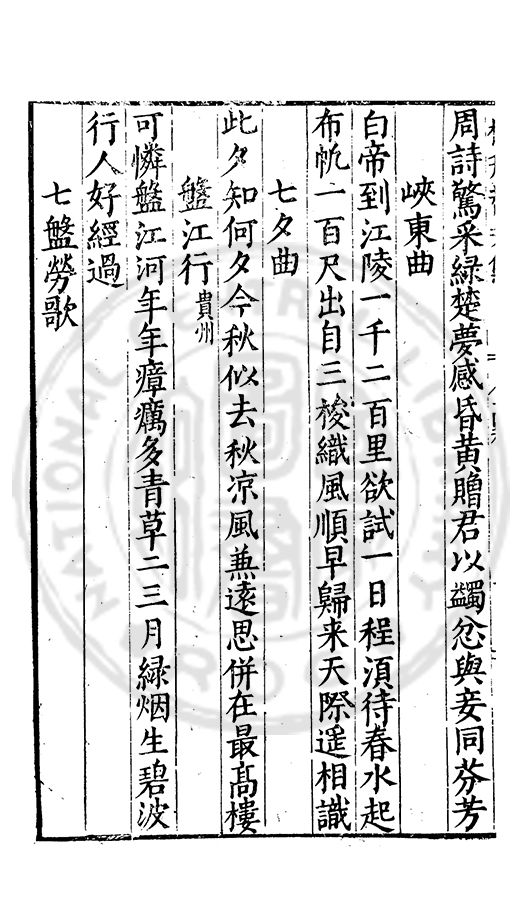 周詩驚采緑楚夢感昏黄贈君以蠲忿與妾同芬芳
峽東曲
白帝到江陵一千二百里欲試一日程湏待春水起
布帆一百尺出自三梭織風順早歸来天際遥相識
七夕曲
此夕知何夕今秋似去秋凉風兼遠思併在最髙樓
盤江行貴州
可憐盤江河年年瘴癘多青草二三月緑烟生碧波
行人好經過
七盤勞歌